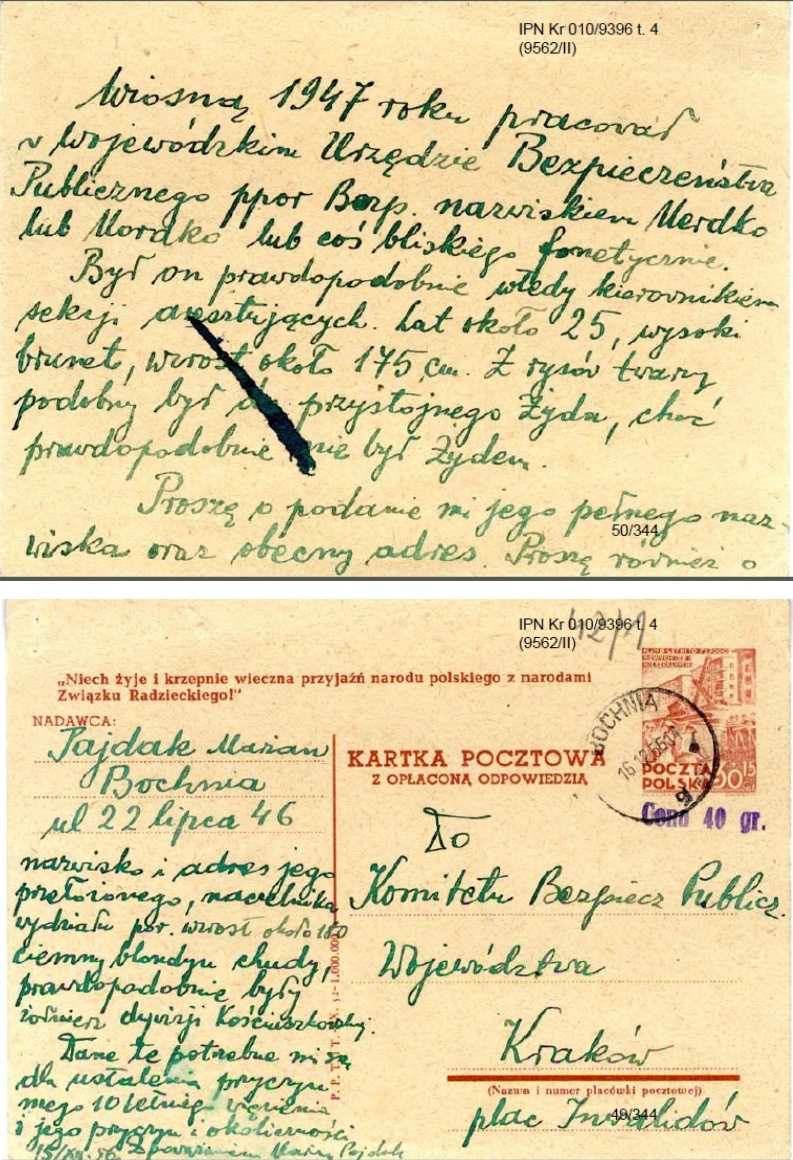 IPN Kr 010/9396 t. 4
(9562/II)
Wiosną 1947 roku pracował
w Wojewódzkim Urzędzie Bezpieczeństwa
Publicznego ppor Bezp. nazwiskiem Merdko
lub Mordko lub coś bliskiego fonetycznie.
Był on prawdopodobnie wtedy kierownikiem
sekcji aresztujących. Lat około 25, wysoki
brunet, wzrost około 175 cm. Z rysów twarzy
podobny był do przystojnego Żyda, choć
prawdopodobnie nie był Żydem.
Proszę o podanie mi jego pełnego naz-
50/344
wiska oraz obecny adres. Proszę również o
IPN Kr 010/9396 t. 4
(9562/II)
„Niech żyje i krzepnie wieczna przyjaźń narodu polskiego z narodami
Związku Radzieckiego!"
NADAWCA:
Pajdak Marian
Bochnia
ul 22 lipca 46
nazwisko i adres jego
przełożonego, naczelnika
wydziału por. wzrost około 180
ciemny blondyn chudy,
prawdopodobnie były
żołnierz dywizji Kościuszkowskiej.
Dane te potrzebne mi są
dla ustalenia przyczyn
mego 10 letniego więzienia
i jego przyczyn i okoliczności
15/XII. 56. Z poważaniem Marian Pajdak
KARTKA POCZTOWA
Z OPŁACONĄ ODPOWIEDZIĄ
BOCHNIA
POCZTA
POLSKA
Cena 40 gr.
Do
Komitetu Bezpiecz Publicz.
Województwa
Kraków
(Nazwa i numer placówki pocztowej)
49/344
plac Inwalidów